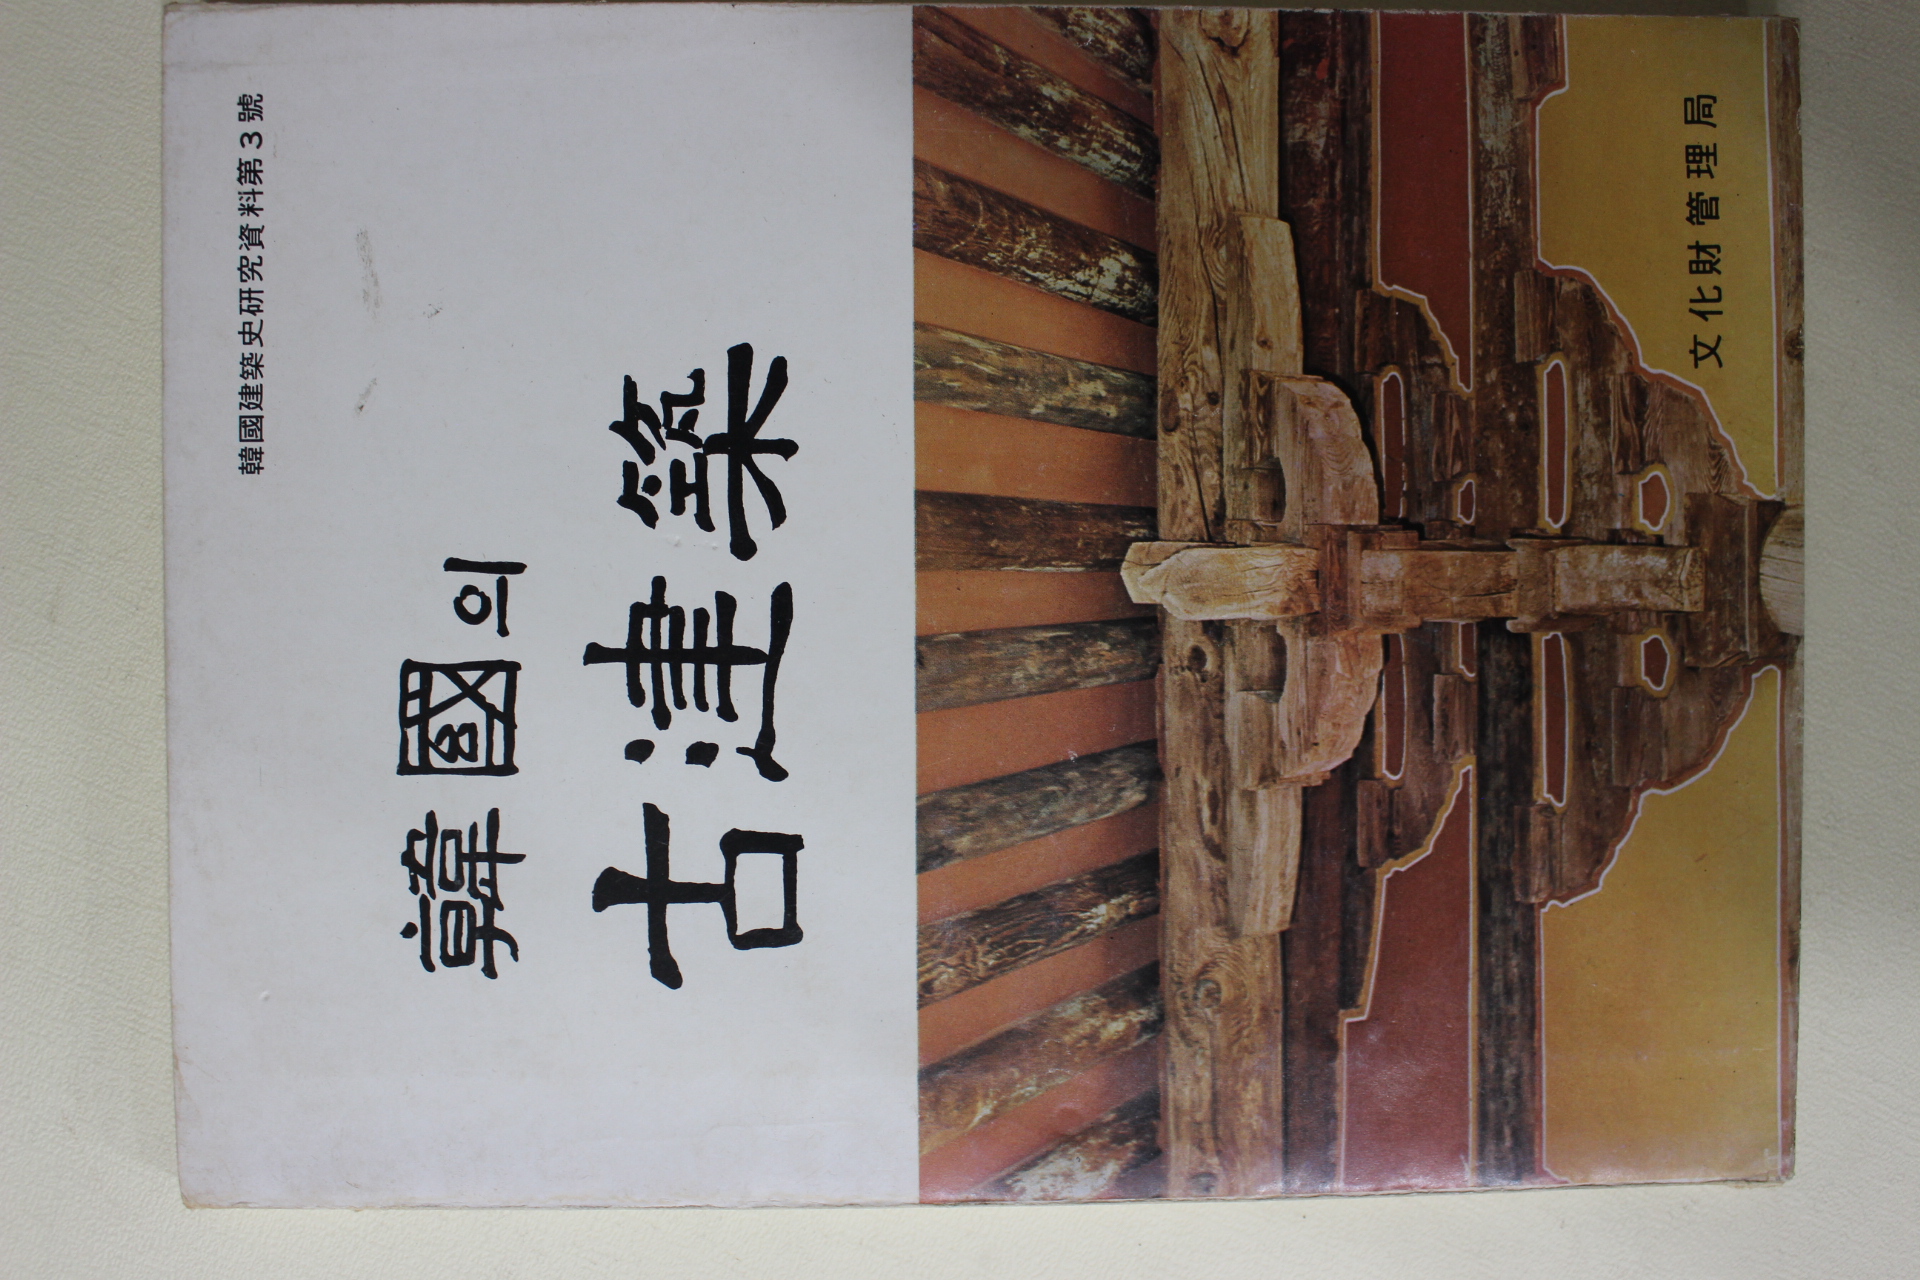 韓國建築史硏究資料第3號
韓國의
古建築
文化財管理局